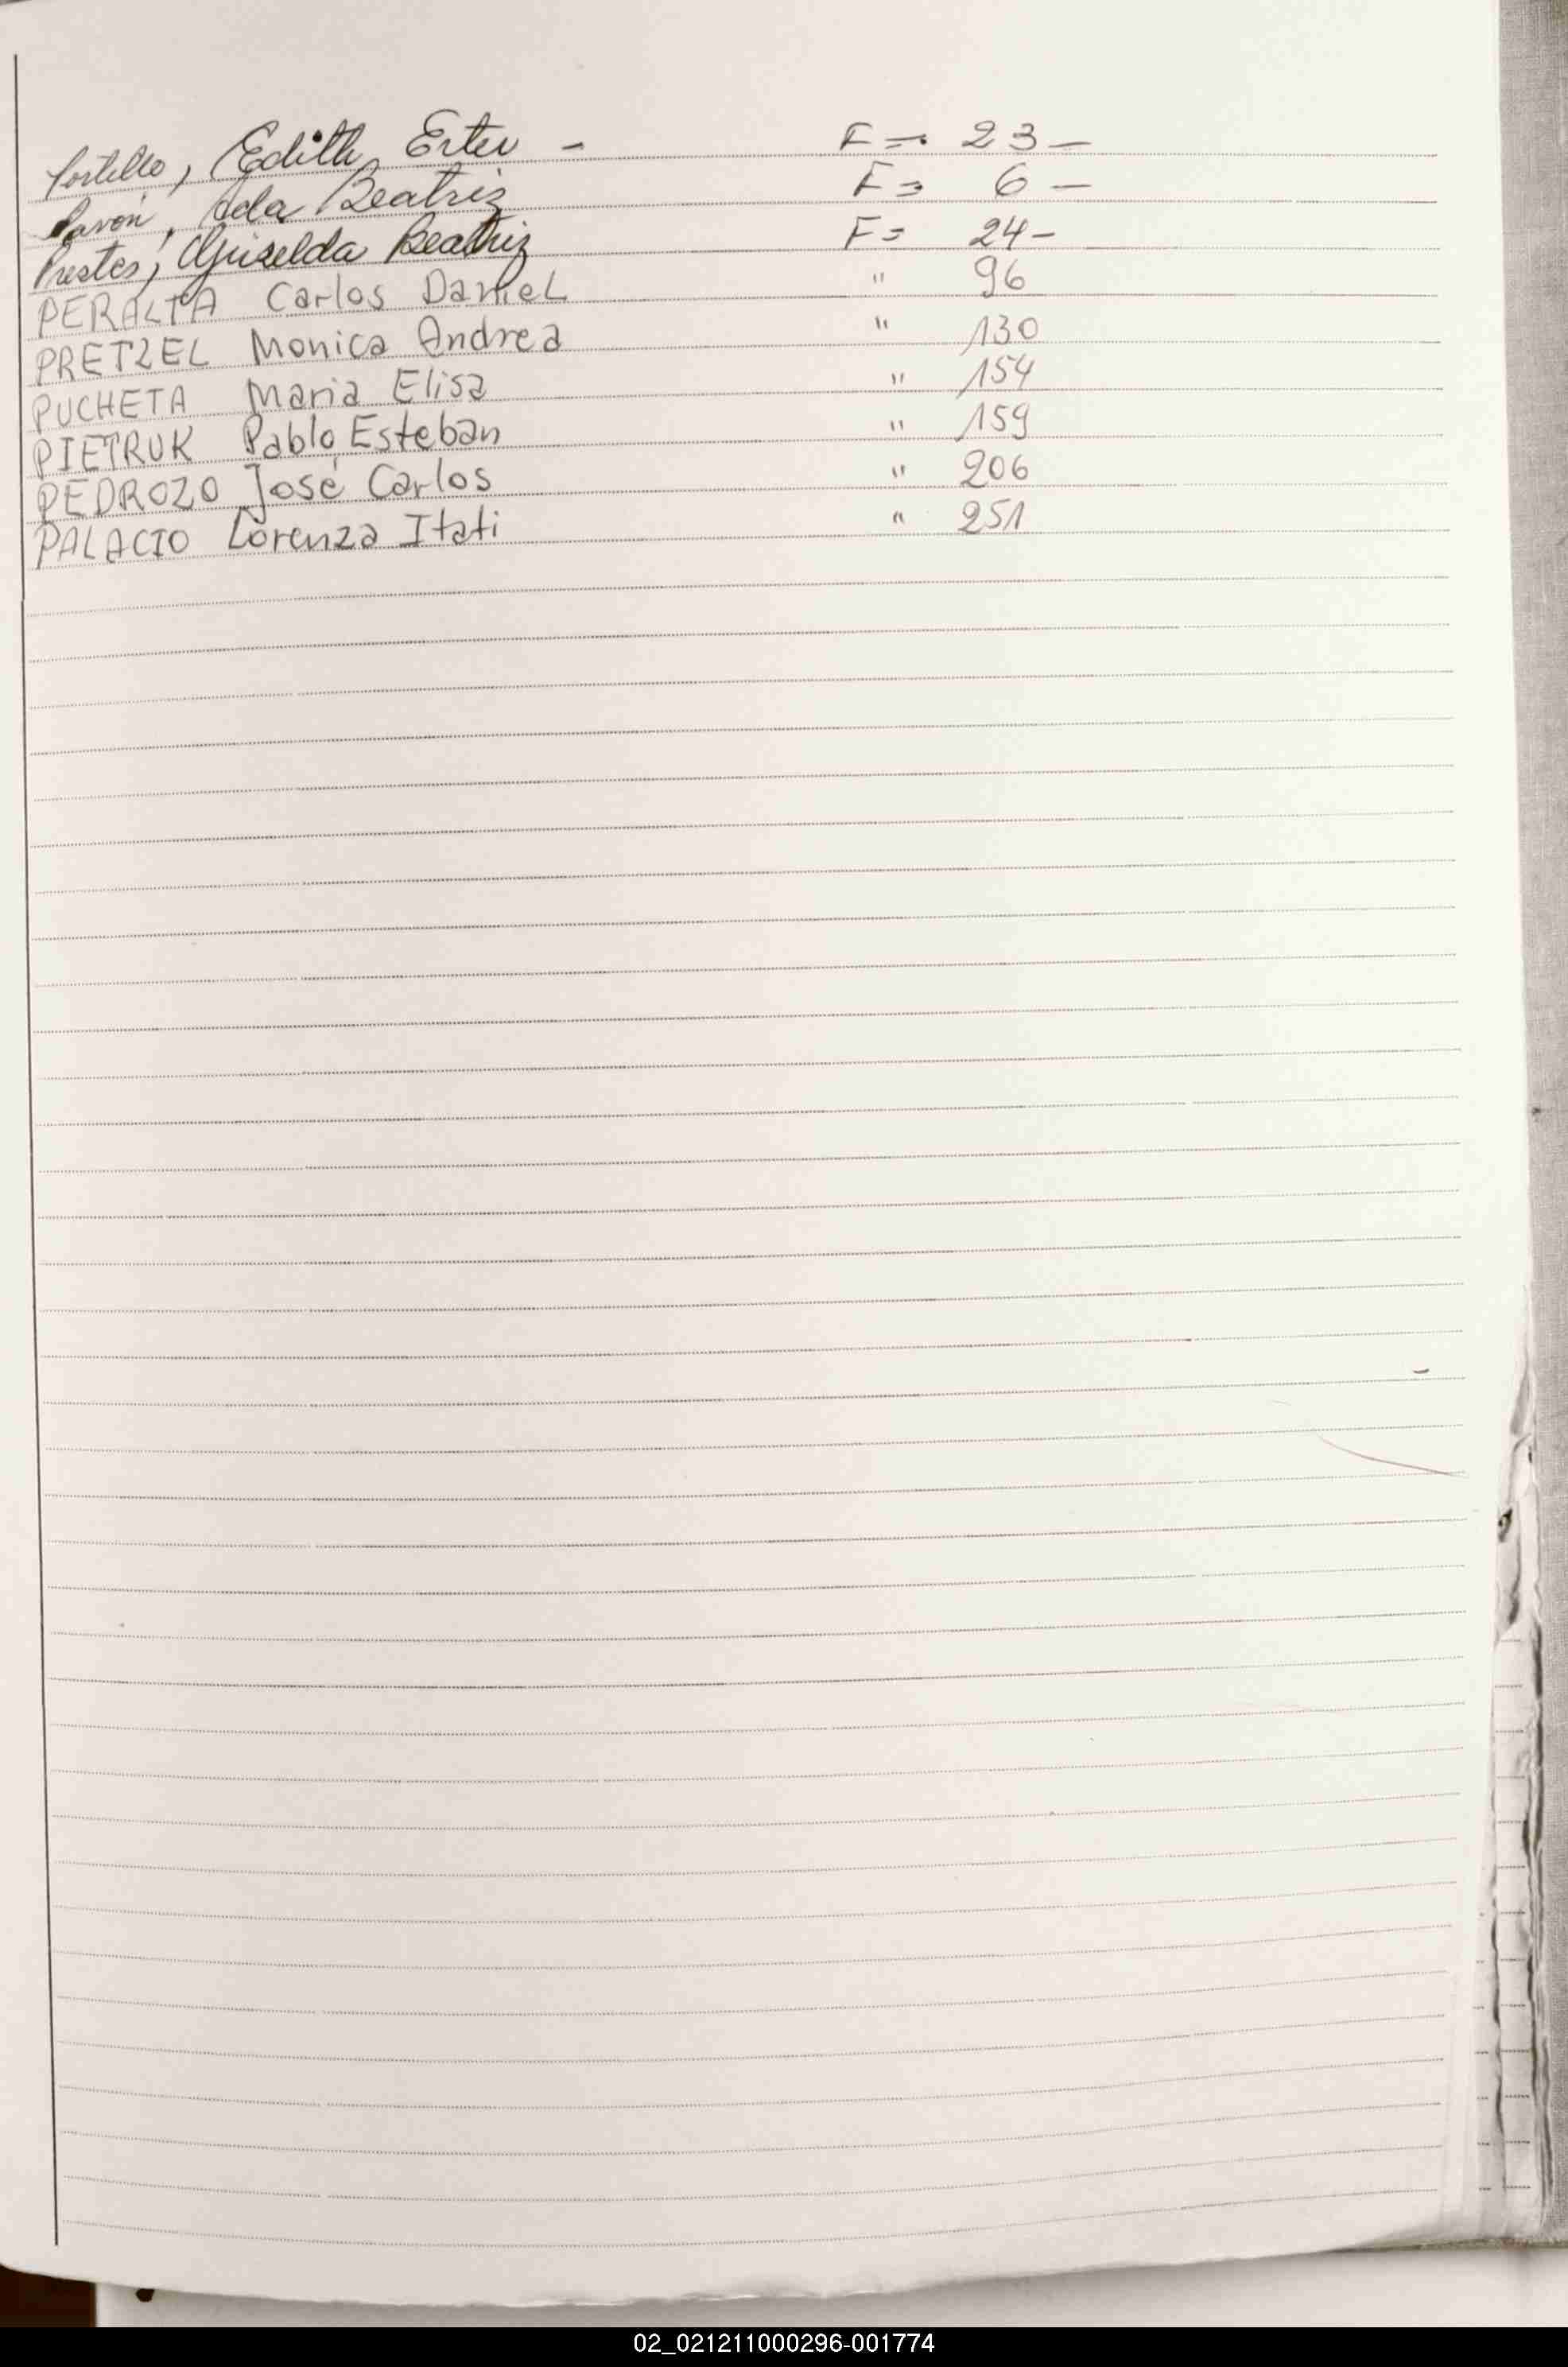 Portillo, Edith Ester - F = 23 -
Pavón, Ada Beatriz F = 6 -
Prestes, Griselda Beatriz F = 24 -
PERALTA Carlos Daniel " 96
PRETZEL Monica Andrea " 130
PUCHETA Maria Elisa " 154
PIETRUK Pablo Esteban " 159
PEDROZO José Carlos " 206
PALACIO Lorenza Itati " 251
02_021211000296-001774